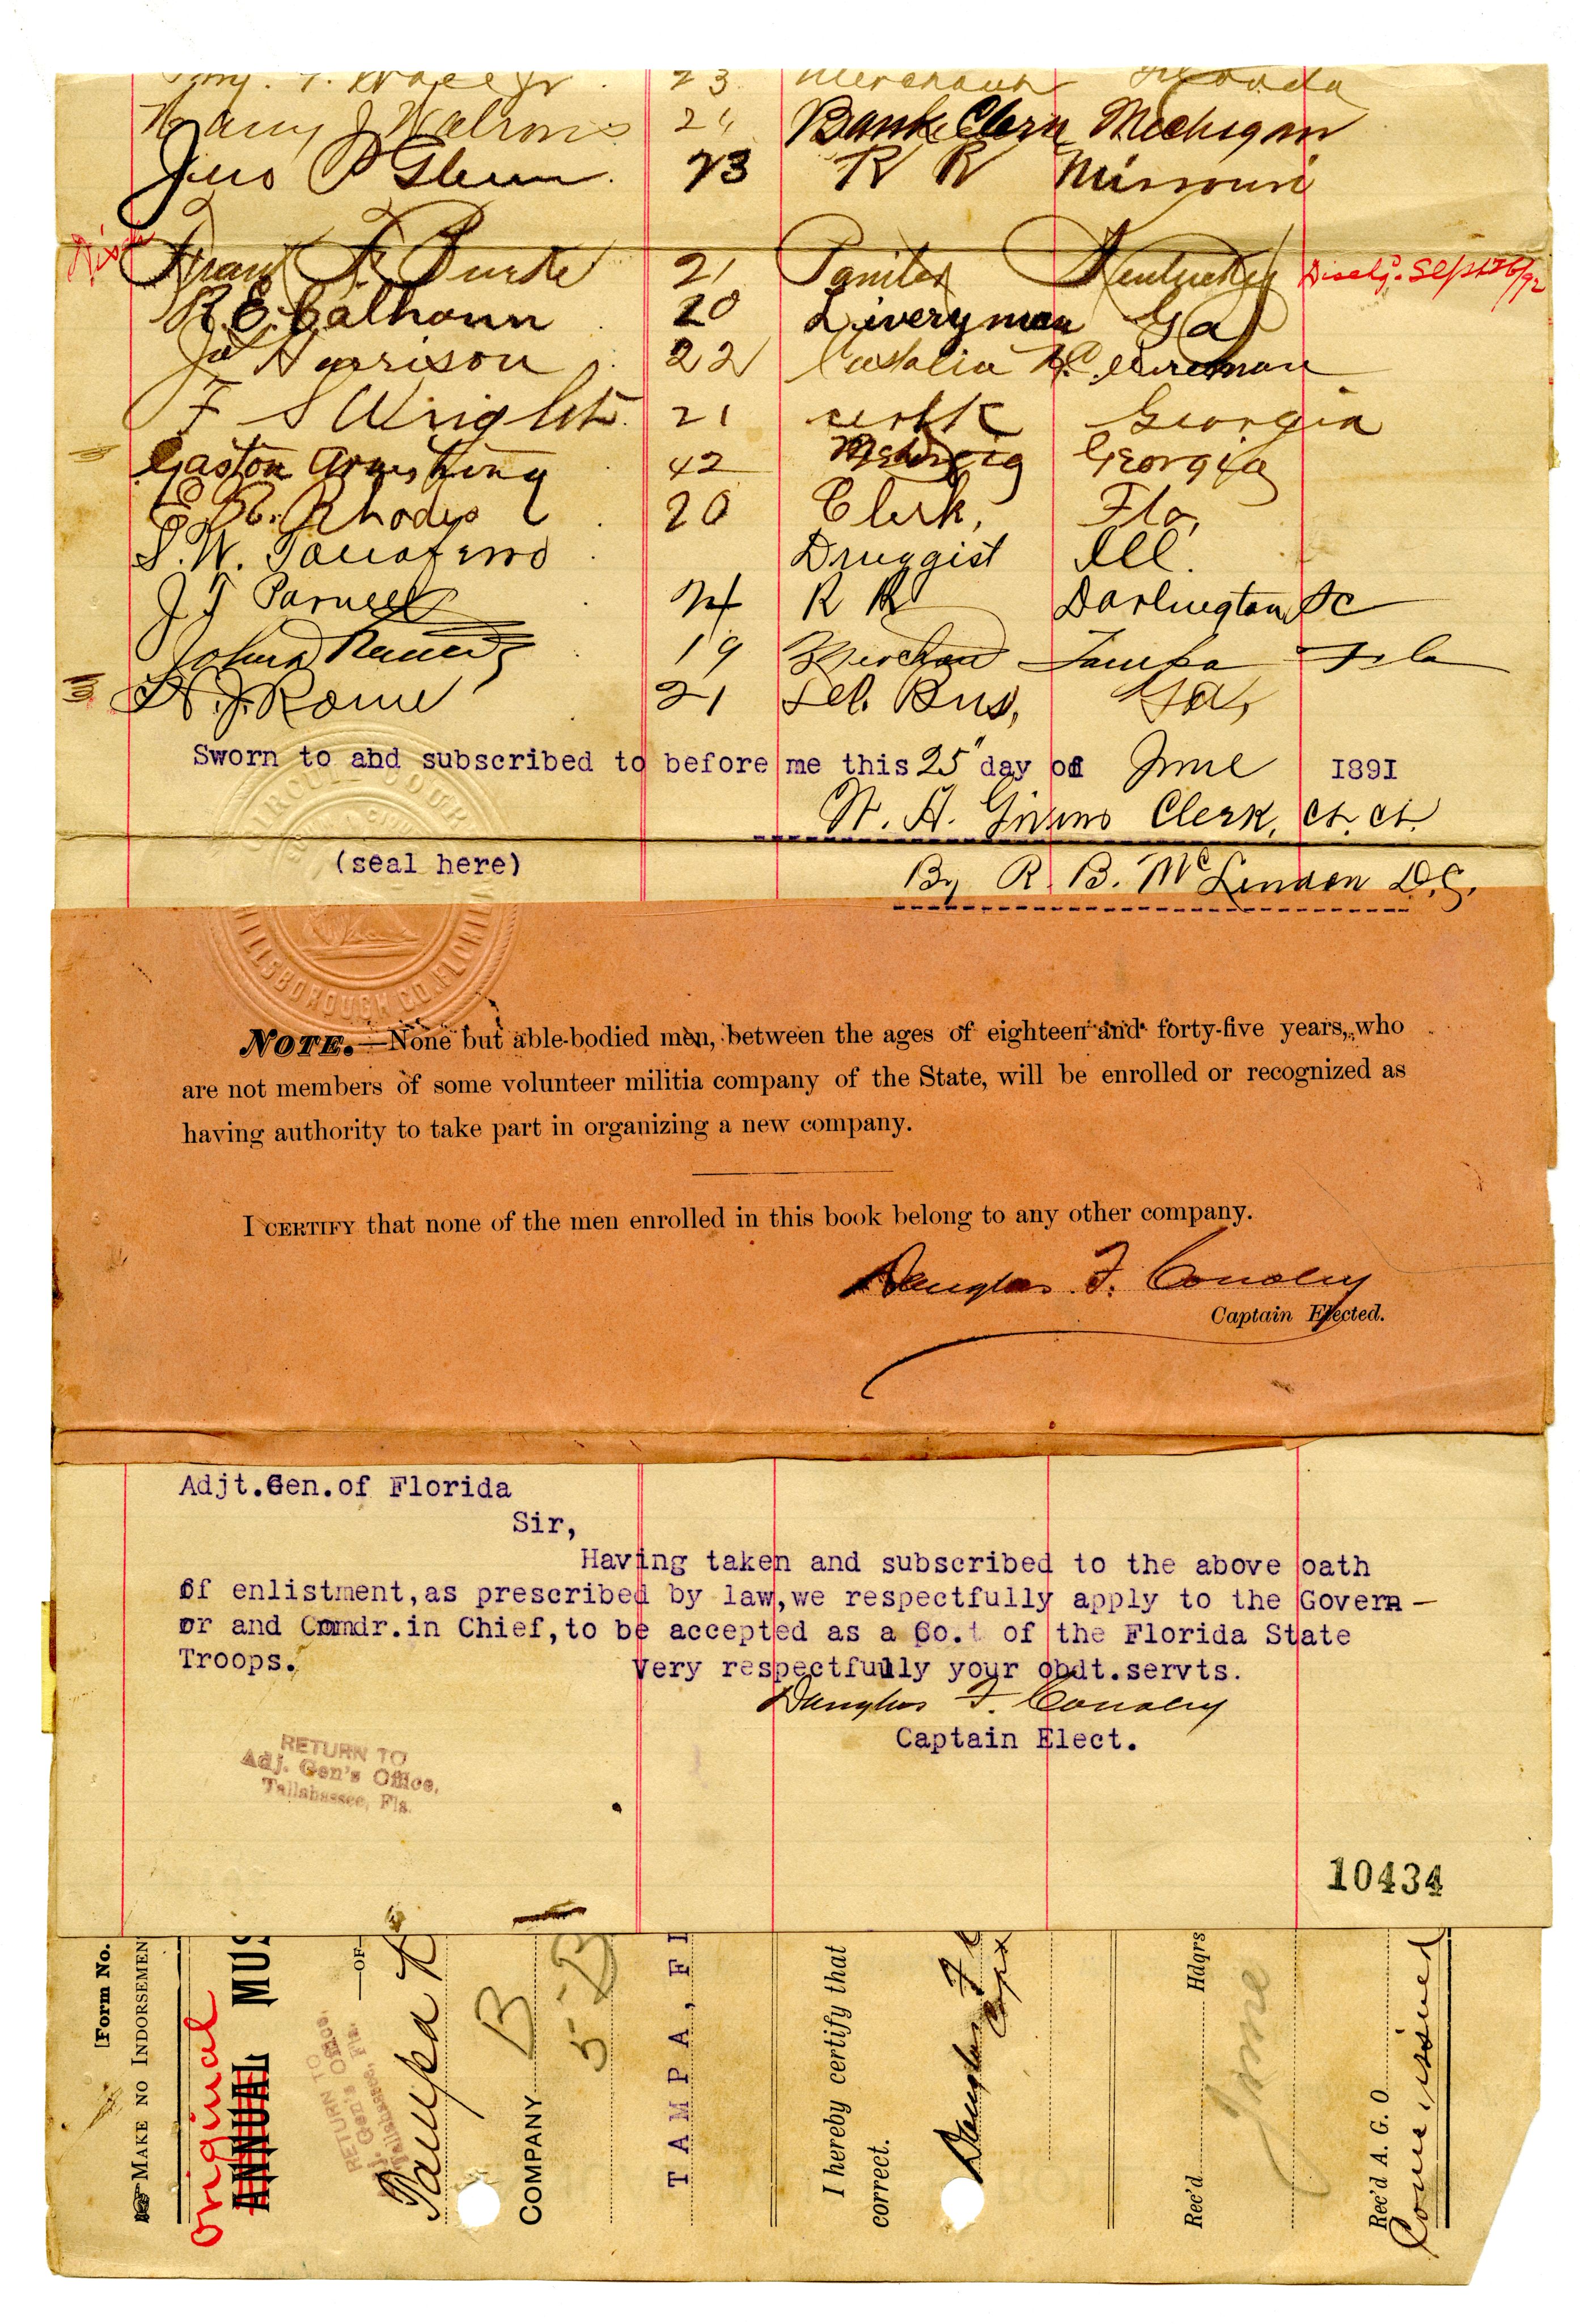 23 Merchant
Harry J 24 Bank Clerk Michigan
Jno P Glenn 23 R R Missouri
Frank F. Burke 21 Painter Kentucky Disch'g. Sept 26/92
R. E. Calhoun 20 Liveryman Ga
Jo Harrison 22 N.C.
F S Wright 21 Georgia
Gaston Armstrong 42 Georgia
E. R. Rhodes 20 Clerk, Fla,
S. W. Druggist Ill.
J T Parnell 24 R R Darlington SC
19 Tampa Fla
H. J. Rowe 21 Bus, Ga,
Sworn to and subscribed to before me this 25" day of June 1891
W. A. Givens Clerk, Ct. Ct.
(seal here)
By R. B. McLendon D.C.
CIRCUIT COURT
HILLSBOROUGH CO. FLORIDA
NOTE.—None but able-bodied men, between the ages of eighteen and forty-five years, who
are not members of some volunteer militia company of the State, will be enrolled or recognized as
having authority to take part in organizing a new company.
I CERTIFY that none of the men enrolled in this book belong to any other company.
Douglas F. Conoley
Captain Elected.
Adjt.Gen.of Florida
Sir,
Having taken and subscribed to the above oath
of enlistment,as prescribed by law,we respectfully apply to the Govern-
or and Comdr.in Chief,to be accepted as a Co. of the Florida State
Troops.
Very respectfully your obdt.servts.
Douglas F. Conoley
Captain Elect.
RETURN TO
Adj. Gen's Office,
Tallahassee, Fla.
10434
[Form No.
MAKE NO INDORSEMEN
original
ANNUAL MUS
—OF—
RETURN TO
Adj. Gen's Office,
Tallahassee, Fla.
Tampa R
COMPANY B
5-B
TAMPA, FL
I hereby certify that
correct.
Douglas F C
Capt
Rec'd Hdqrs
June
Rec'd A. G. O.
Com. issued